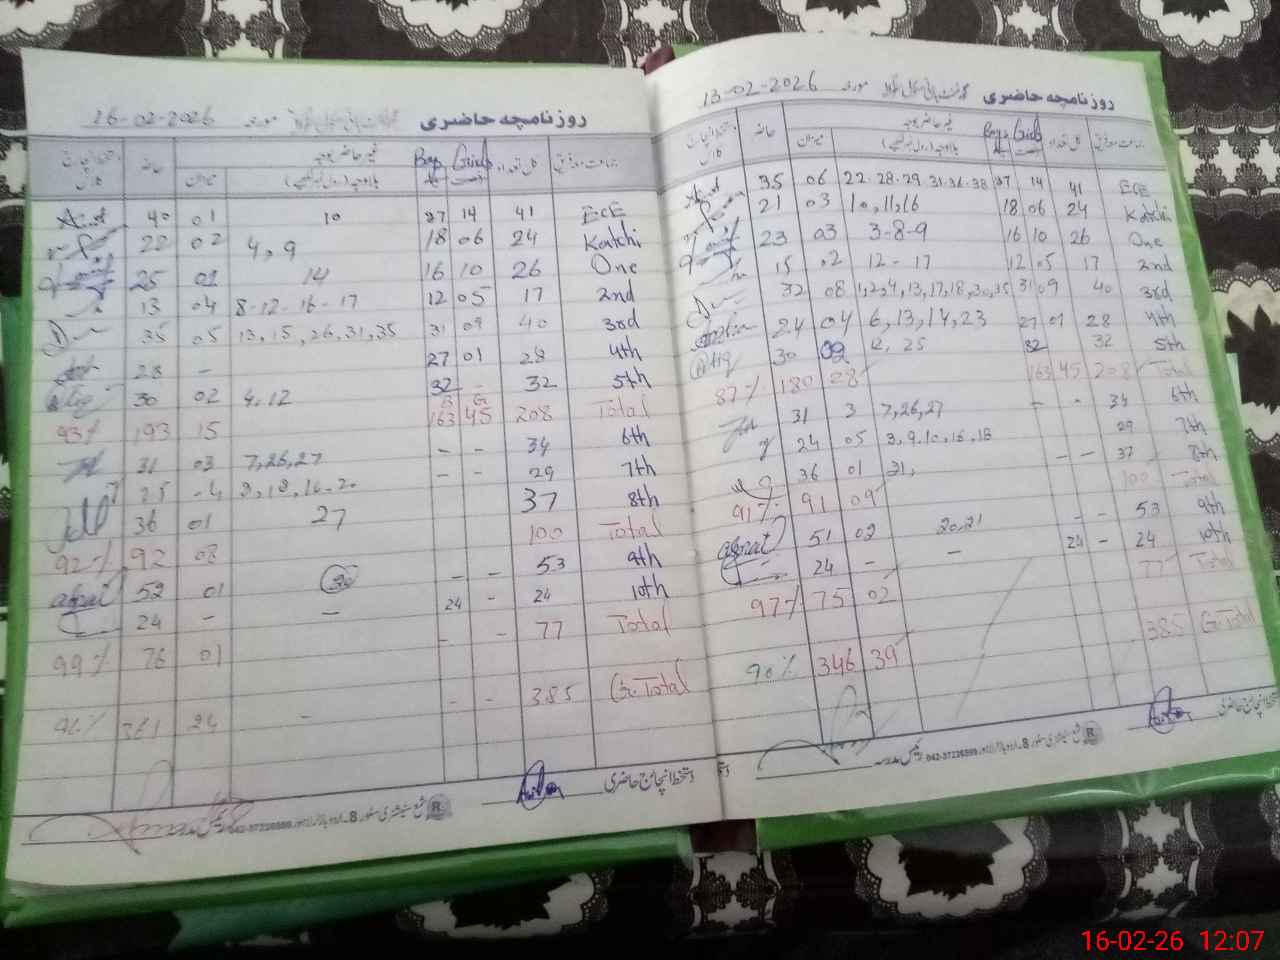 روزنامچہ حاضری مورخہ 16-02-2026
جماعت کل تعداد Girls Boys غیر حاضر بوجہ حاضر
ECE 41 14 27 10 01 40
Katchi 24 06 18 4, 9 02 22
One 26 10 16 14 01 25
2nd 17 05 12 8-12-16-17 04 13
3rd 40 09 31 13, 15, 26, 31, 35 05 35
4th 28 01 27 - 28
5th 32 - 32 4, 12 02 30
B G
Total 208 45 163 15 193 93%
6th 34 - - 7, 26, 27 03 31
7th 29 - - 25
8th 37 27 01 36
Total 100 08 92 92%
9th 53 - - 01 52
10th 24 - 24 - - 24
Total 77 - - 01 76 99%
G. Total 385 - - - 24 361
دستخط انچارج حاضری
روزنامچہ حاضری مورخہ 13-02-2026
جماعت کل تعداد Girls Boys غیر حاضر بوجہ میزان حاضر
ECE 41 14 27 22-28-29-31-36-38 06 35
Katchi 24 06 18 10, 11, 16 03 21
One 26 10 16 3-8-9 03 23
2nd 17 05 12 12-17 02 15
3rd 40 09 31 1, 2, 4, 13, 17, 18, 30, 35 08 32
4th 28 01 27 6, 13, 14, 23 04 24
5th 32 32 12, 25 02 30
Total 208 45 163 28 180 87%
6th 34 - - 7, 26, 27 3 31
7th 29 3, 9, 10, 16, 18 05 24
8th 37 - - 31, 01 36
Total 100 09 91 91%
9th 53 - - 20, 21 02 51
10th 24 - 24 - - 24
Total 77 02 75 97%
G. Total 385 39 346 90%
دستخط انچارج حاضری
16-02-26 12:07